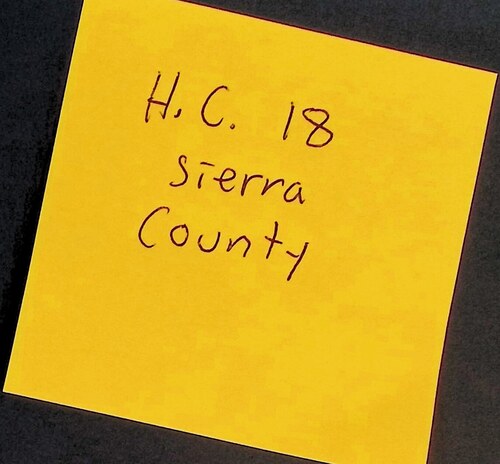 H.C. 18
sierra
County